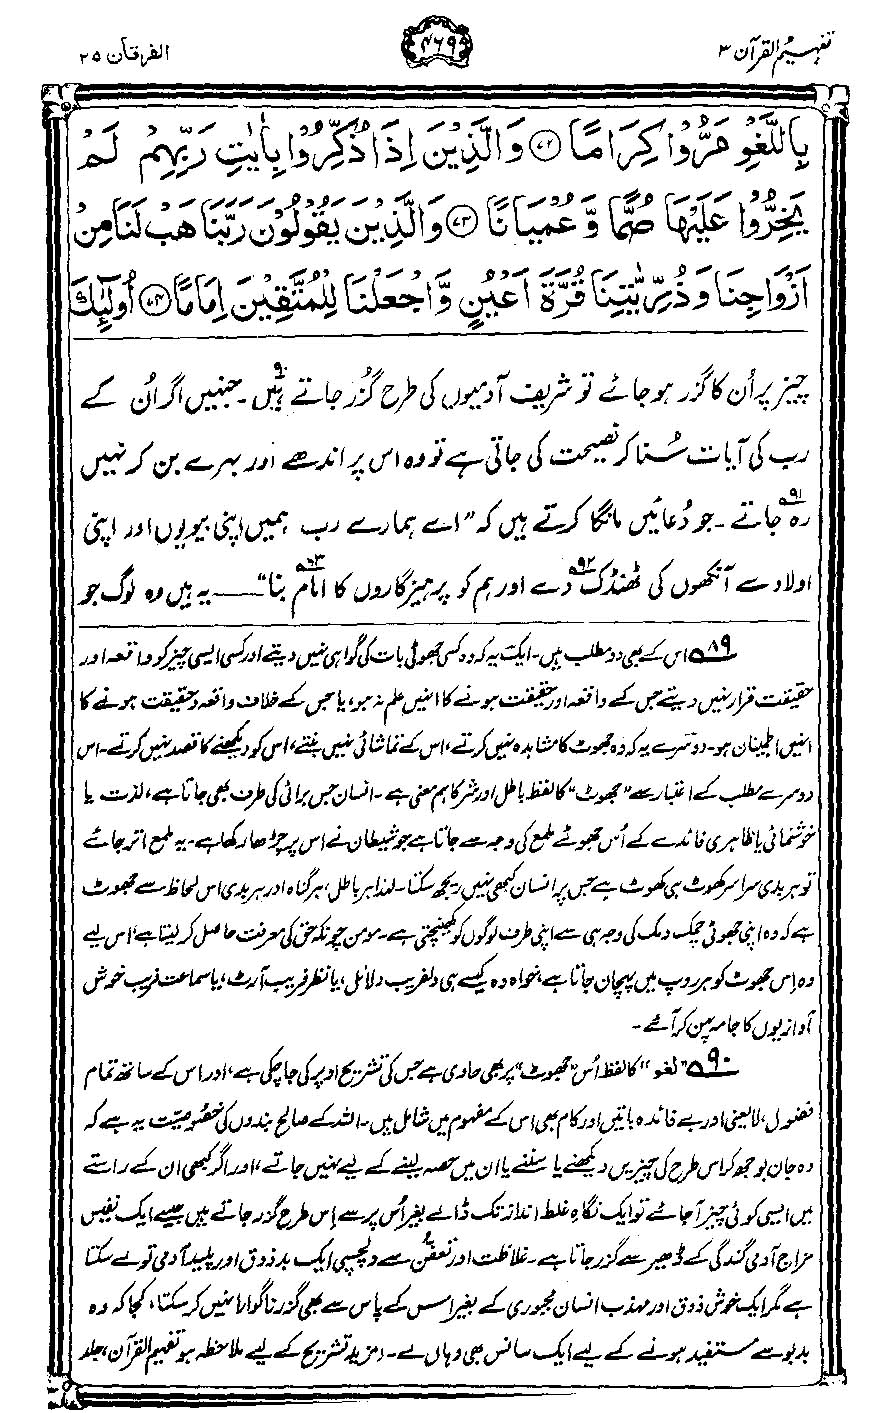 تفہیم القرآن ۳
۴۶۹
الفرقان ۲۵
بِاللَّغْوِ مَرُّوْا كِرَامًا ﴿۷۲﴾ وَالَّذِيْنَ اِذَا ذُكِّرُوْا بِاٰيٰتِ رَبِّهِمْ لَمْ
يَخِرُّوْا عَلَيْهَا صُمًّا وَّ عُمْيَانًا ﴿۷۳﴾ وَالَّذِيْنَ يَقُوْلُوْنَ رَبَّنَا هَبْ لَنَا مِنْ
اَزْوَاجِنَا وَ ذُرِّيّٰتِنَا قُرَّةَ اَعْيُنٍ وَّ اجْعَلْنَا لِلْمُتَّقِيْنَ اِمَامًا ﴿۷۴﴾ اُولٰٓئِكَ
چیز پر اُن کا گزر ہو جائے تو شریف آدمیوں کی طرح گزر جاتے ہیں۹۰۔ جنہیں اگر اُن کے
رب کی آیات سُنا کر نصیحت کی جاتی ہے تو وہ اس پر اندھے اور بہرے بن کر نہیں
رہ جاتے۹۱۔ جو دُعائیں مانگا کرتے ہیں کہ ”اے ہمارے رب ہمیں اپنی بیویوں اور اپنی
اولاد سے آنکھوں کی ٹھنڈک دے۹۲ اور ہم کو پرہیزگاروں کا امام بنا“۹۳ــــ یہ ہیں وہ لوگ جو
۸۹ اس کے بھی دو مطلب ہیں۔ ایک یہ کہ وہ کسی جھوٹی بات کی گواہی نہیں دیتے اور کسی ایسی چیز کو واقعہ اور
حقیقت قرار نہیں دیتے جس کے واقعہ اور حقیقت ہونے کا انہیں علم نہ ہو، یا جس کے خلاف واقعہ و حقیقت ہونے کا
انہیں اطمینان ہو۔ دوسرے یہ کہ وہ جھوٹ کا مشاہدہ نہیں کرتے، اس کے تماشائی نہیں بنتے، اس کو دیکھنے کا قصد نہیں کرتے۔ اس
دوسرے مطلب کے اعتبار سے ”جھوٹ“ کا لفظ باطل اور شر کا ہم معنی ہے۔ انسان جس برائی کی طرف بھی جاتا ہے، لذت یا
خوشنمائی یا ظاہری فائدے کے اُس جھوٹے ملمع کی وجہ سے جاتا ہے جو شیطان نے اس پر چڑھا رکھا ہے۔ یہ ملمع اتر جائے
تو ہر بدی سراسر کھوٹ ہی کھوٹ ہے جس پر انسان کبھی نہیں ریجھ سکتا۔ لہٰذا ہر باطل، ہر گناہ اور ہر بدی اس لحاظ سے جھوٹ
ہے کہ وہ اپنی جھوٹی چمک دمک کی وجہ ہی سے اپنی طرف لوگوں کو کھینچتی ہے۔ مومن چونکہ حق کی معرفت حاصل کر لیتا ہے، اس لیے
وہ اِس جھوٹ کو ہر روپ میں پہچان جاتا ہے، خواہ وہ کیسے ہی دلفریب دلائل، یا نظر فریب آرٹ، یا سماعت فریب خوش
آوازیوں کا جامہ پہن کر آئے۔
۹۰ ”لغو“ کا لفظ اُس ”جھوٹ“ پر بھی حاوی ہے جس کی تشریح اوپر کی جا چکی ہے، اور اس کے ساتھ تمام
فضول، لایعنی اور بے فائدہ باتیں اور کام بھی اس کے مفہوم میں شامل ہیں۔ اللہ کے صالح بندوں کی خصوصیت یہ ہے کہ
وہ جان بوجھ کر اس طرح کی چیزیں دیکھنے یا سننے یا ان میں حصہ لینے کے لیے نہیں جاتے، اور اگر کبھی ان کے راستے
میں ایسی کوئی چیز آ جائے تو ایک نگاہِ غلط انداز تک ڈالے بغیر اُس پر سے اِس طرح گزر جاتے ہیں جیسے ایک نفیس
مزاج آدمی گندگی کے ڈھیر سے گزر جاتا ہے۔ غلاظت اور تعفن سے دلچسپی ایک بد ذوق اور پلید آدمی تو لے سکتا
ہے مگر ایک خوش ذوق اور مہذب انسان مجبوری کے بغیر اس کے پاس سے بھی گزرنا گوارا نہیں کر سکتا، کجا کہ وہ
بدبو سے مستفید ہونے کے لیے ایک سانس بھی وہاں لے۔ (مزید تشریح کے لیے ملاحظہ ہو تفہیم القرآن، جلد